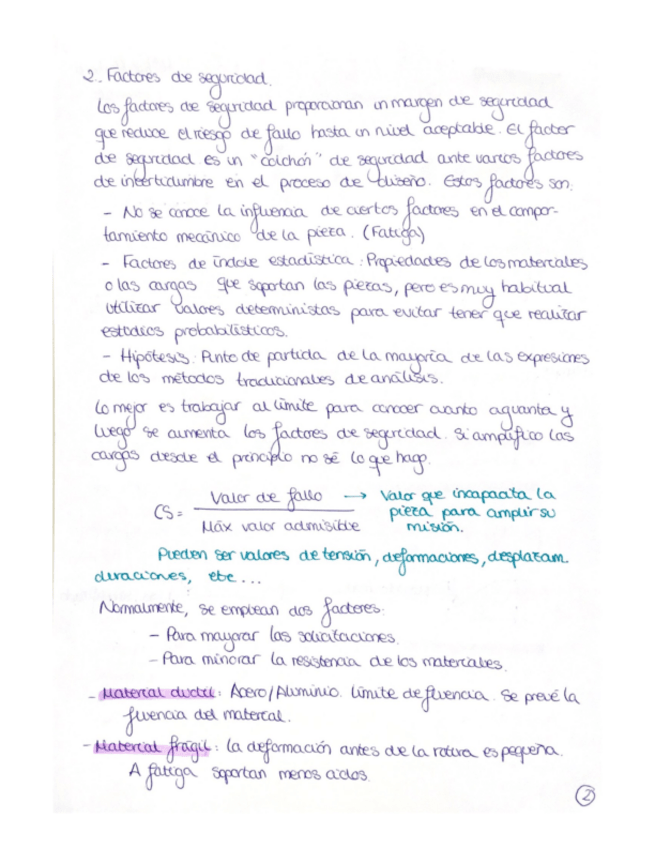 2. Factores de seguridad.
Los factores de seguridad proporcionan un margen de seguridad
que reduce el riesgo de fallo hasta un nivel aceptable. El factor
de seguridad es un "colchón" de seguridad ante varios factores
de incertidumbre en el proceso de diseño. Estos factores son:
- No se conoce la influencia de ciertos factores en el compor-
tamiento mecánico de la pieza. (Fatiga)
- Factores de índole estadística: Propiedades de los materiales
o las cargas que soportan las piezas, pero es muy habitual
utilizar valores deterministas para evitar tener que realizar
estudios probabilísticos.
- Hipótesis: Punto de partida de la mayoría de las expresiones
de los métodos tradicionales de análisis.
Lo mejor es trabajar al límite para conocer cuanto aguanta y
luego se aumenta los factores de seguridad. Si amplifico las
cargas desde el principio no sé lo que hago.
CS = Valor de fallo / Máx valor admisible → Valor que incapacita la
pieza para cumplir su
misión.
Pueden ser valores de tensión, deformaciones, desplazam.
duraciones, etc...
Normalmente, se emplean dos factores:
- Para mayorar las solicitaciones.
- Para minorar la resistencia de los materiales.
- Material ductil: Acero/Aluminio. Límite de fluencia. Se prevé la
fluencia del material.
- Material frágil: la deformación antes de la rotura es pequeña.
A fatiga soportan menos ciclos.
2